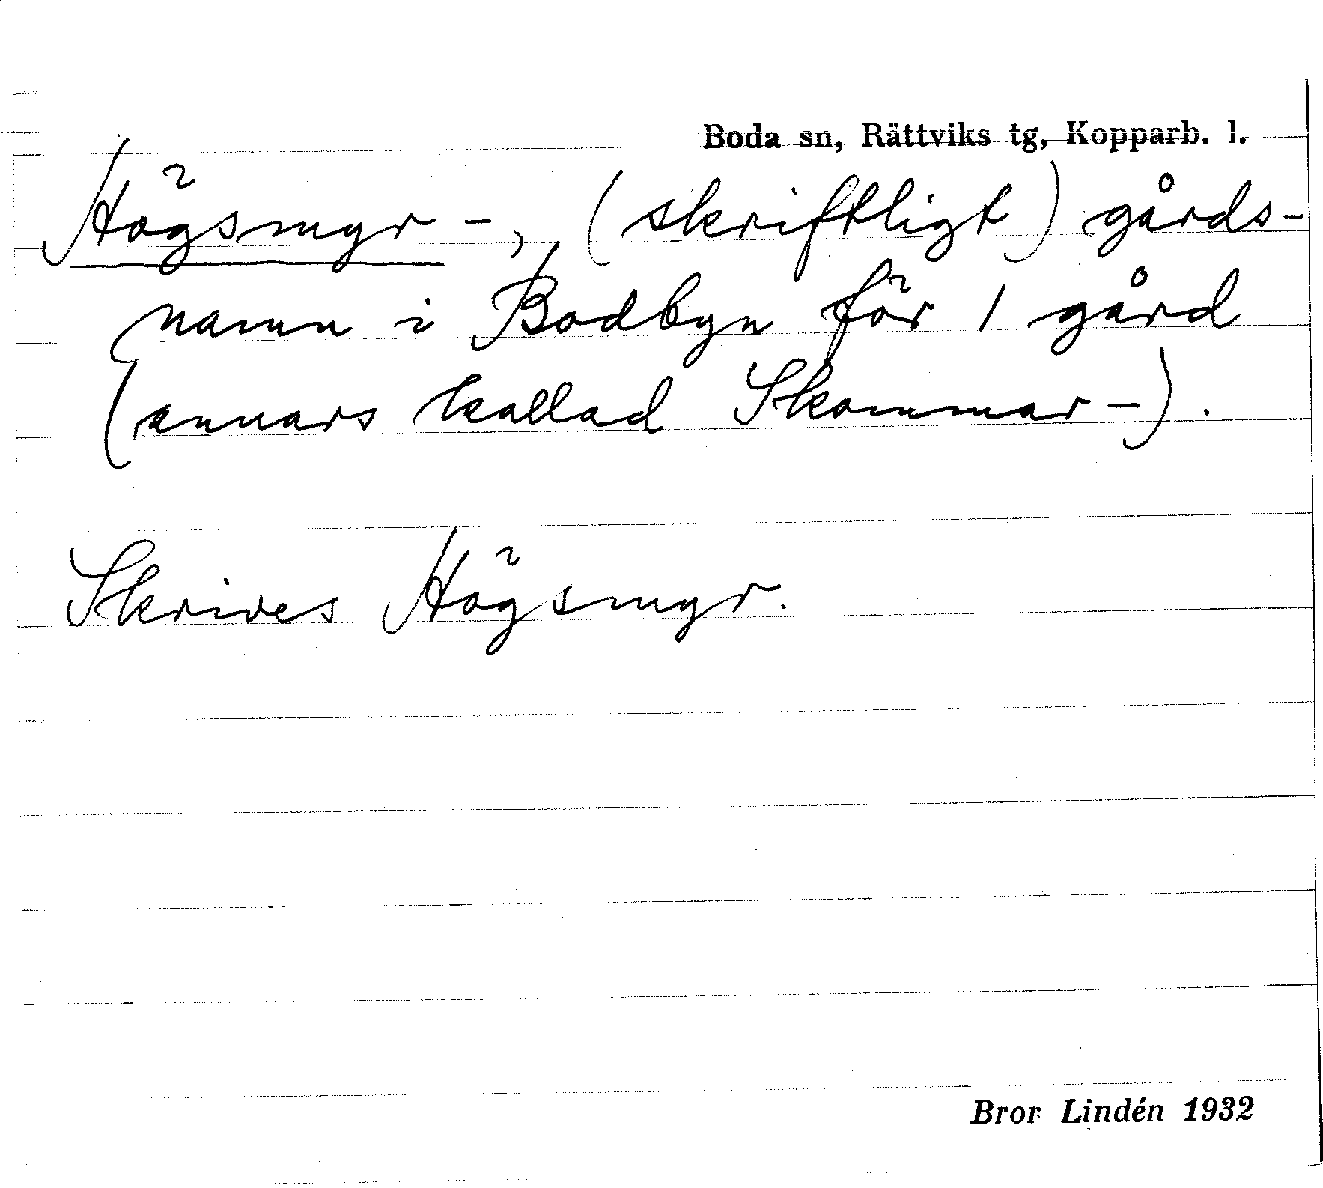 Boda sn, Rättviks tg, Kopparb. l.
Högsmyr-, (skriftligt) gårds-
namn i Bodbyn för 1 gård
(annars kallad Skommar-).
Skrives Högsmyr.
Bror Lindén 1932